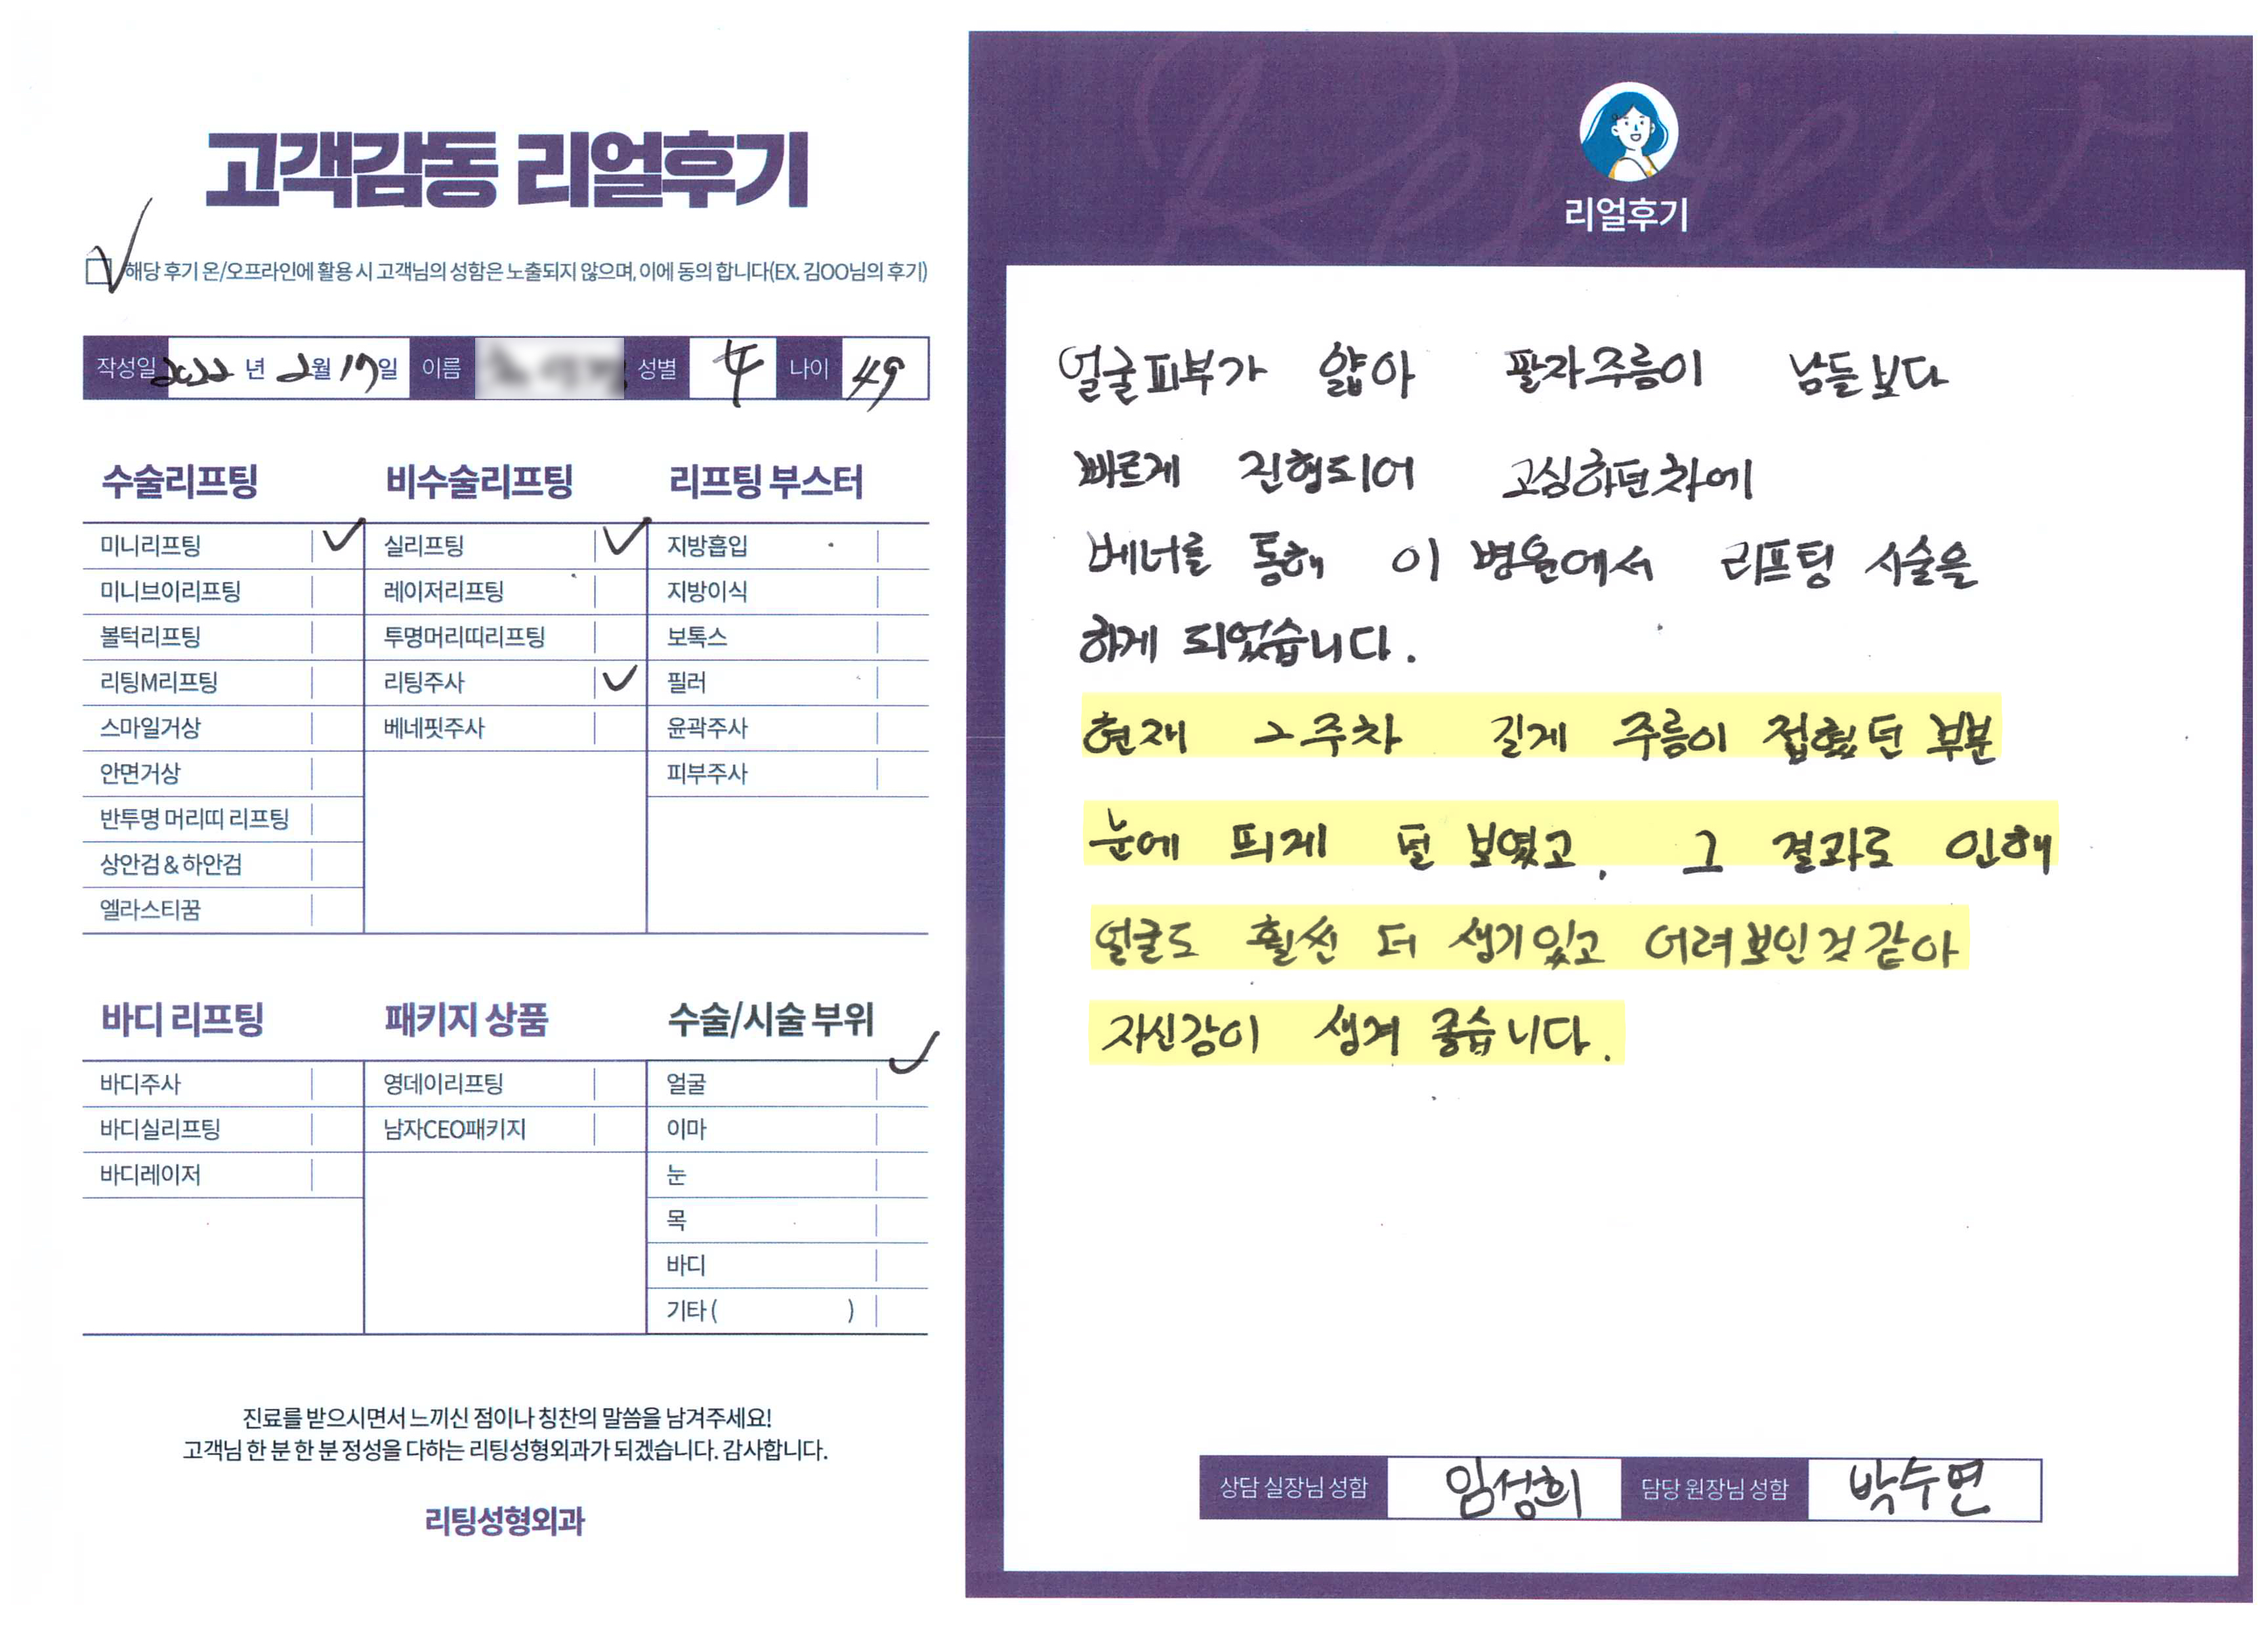 고객감동 리얼후기
해당 후기 온/오프라인에 활용 시 고객님의 성함은 노출되지 않으며, 이에 동의 합니다(EX. 김OO님의 후기)
작성일 2022 년 2월 17일 이름 성별 나이 49
수술리프팅 비수술리프팅 리프팅 부스터
미니리프팅 실리프팅 지방흡입
미니브이리프팅 레이저리프팅 지방이식
볼턱리프팅 투명머리띠리프팅 보톡스
리팅M리프팅 리팅주사 필러
스마일거상 베네핏주사 윤곽주사
안면거상 피부주사
반투명 머리띠 리프팅
상안검 & 하안검
엘라스티꿈
바디 리프팅 패키지 상품 수술/시술 부위
바디주사 영데이리프팅 얼굴
바디실리프팅 남자CEO패키지 이마
바디레이저 눈
목
바디
기타 ( )
진료를 받으시면서 느끼신 점이나 칭찬의 말씀을 남겨주세요!
고객님 한 분 한 분 정성을 다하는 리팅성형외과가 되겠습니다. 감사합니다.
리팅성형외과
Review
리얼후기
얼굴피부가 얇아 팔자주름이 남들보다
빠르게 진행되어 고심하던차에
베너를 통해 이 병원에서 리프팅 시술을
하게 되었습니다.
현재 2주차 길게 주름이 접혔던 부분
눈에 띄게 덜 보였고, 그 결과로 인해
얼굴도 훨씬 더 생기있고 어려보인것 같아
자신감이 생겨 좋습니다.
상담 실장님 성함 임성희 담당 원장님 성함 박수연